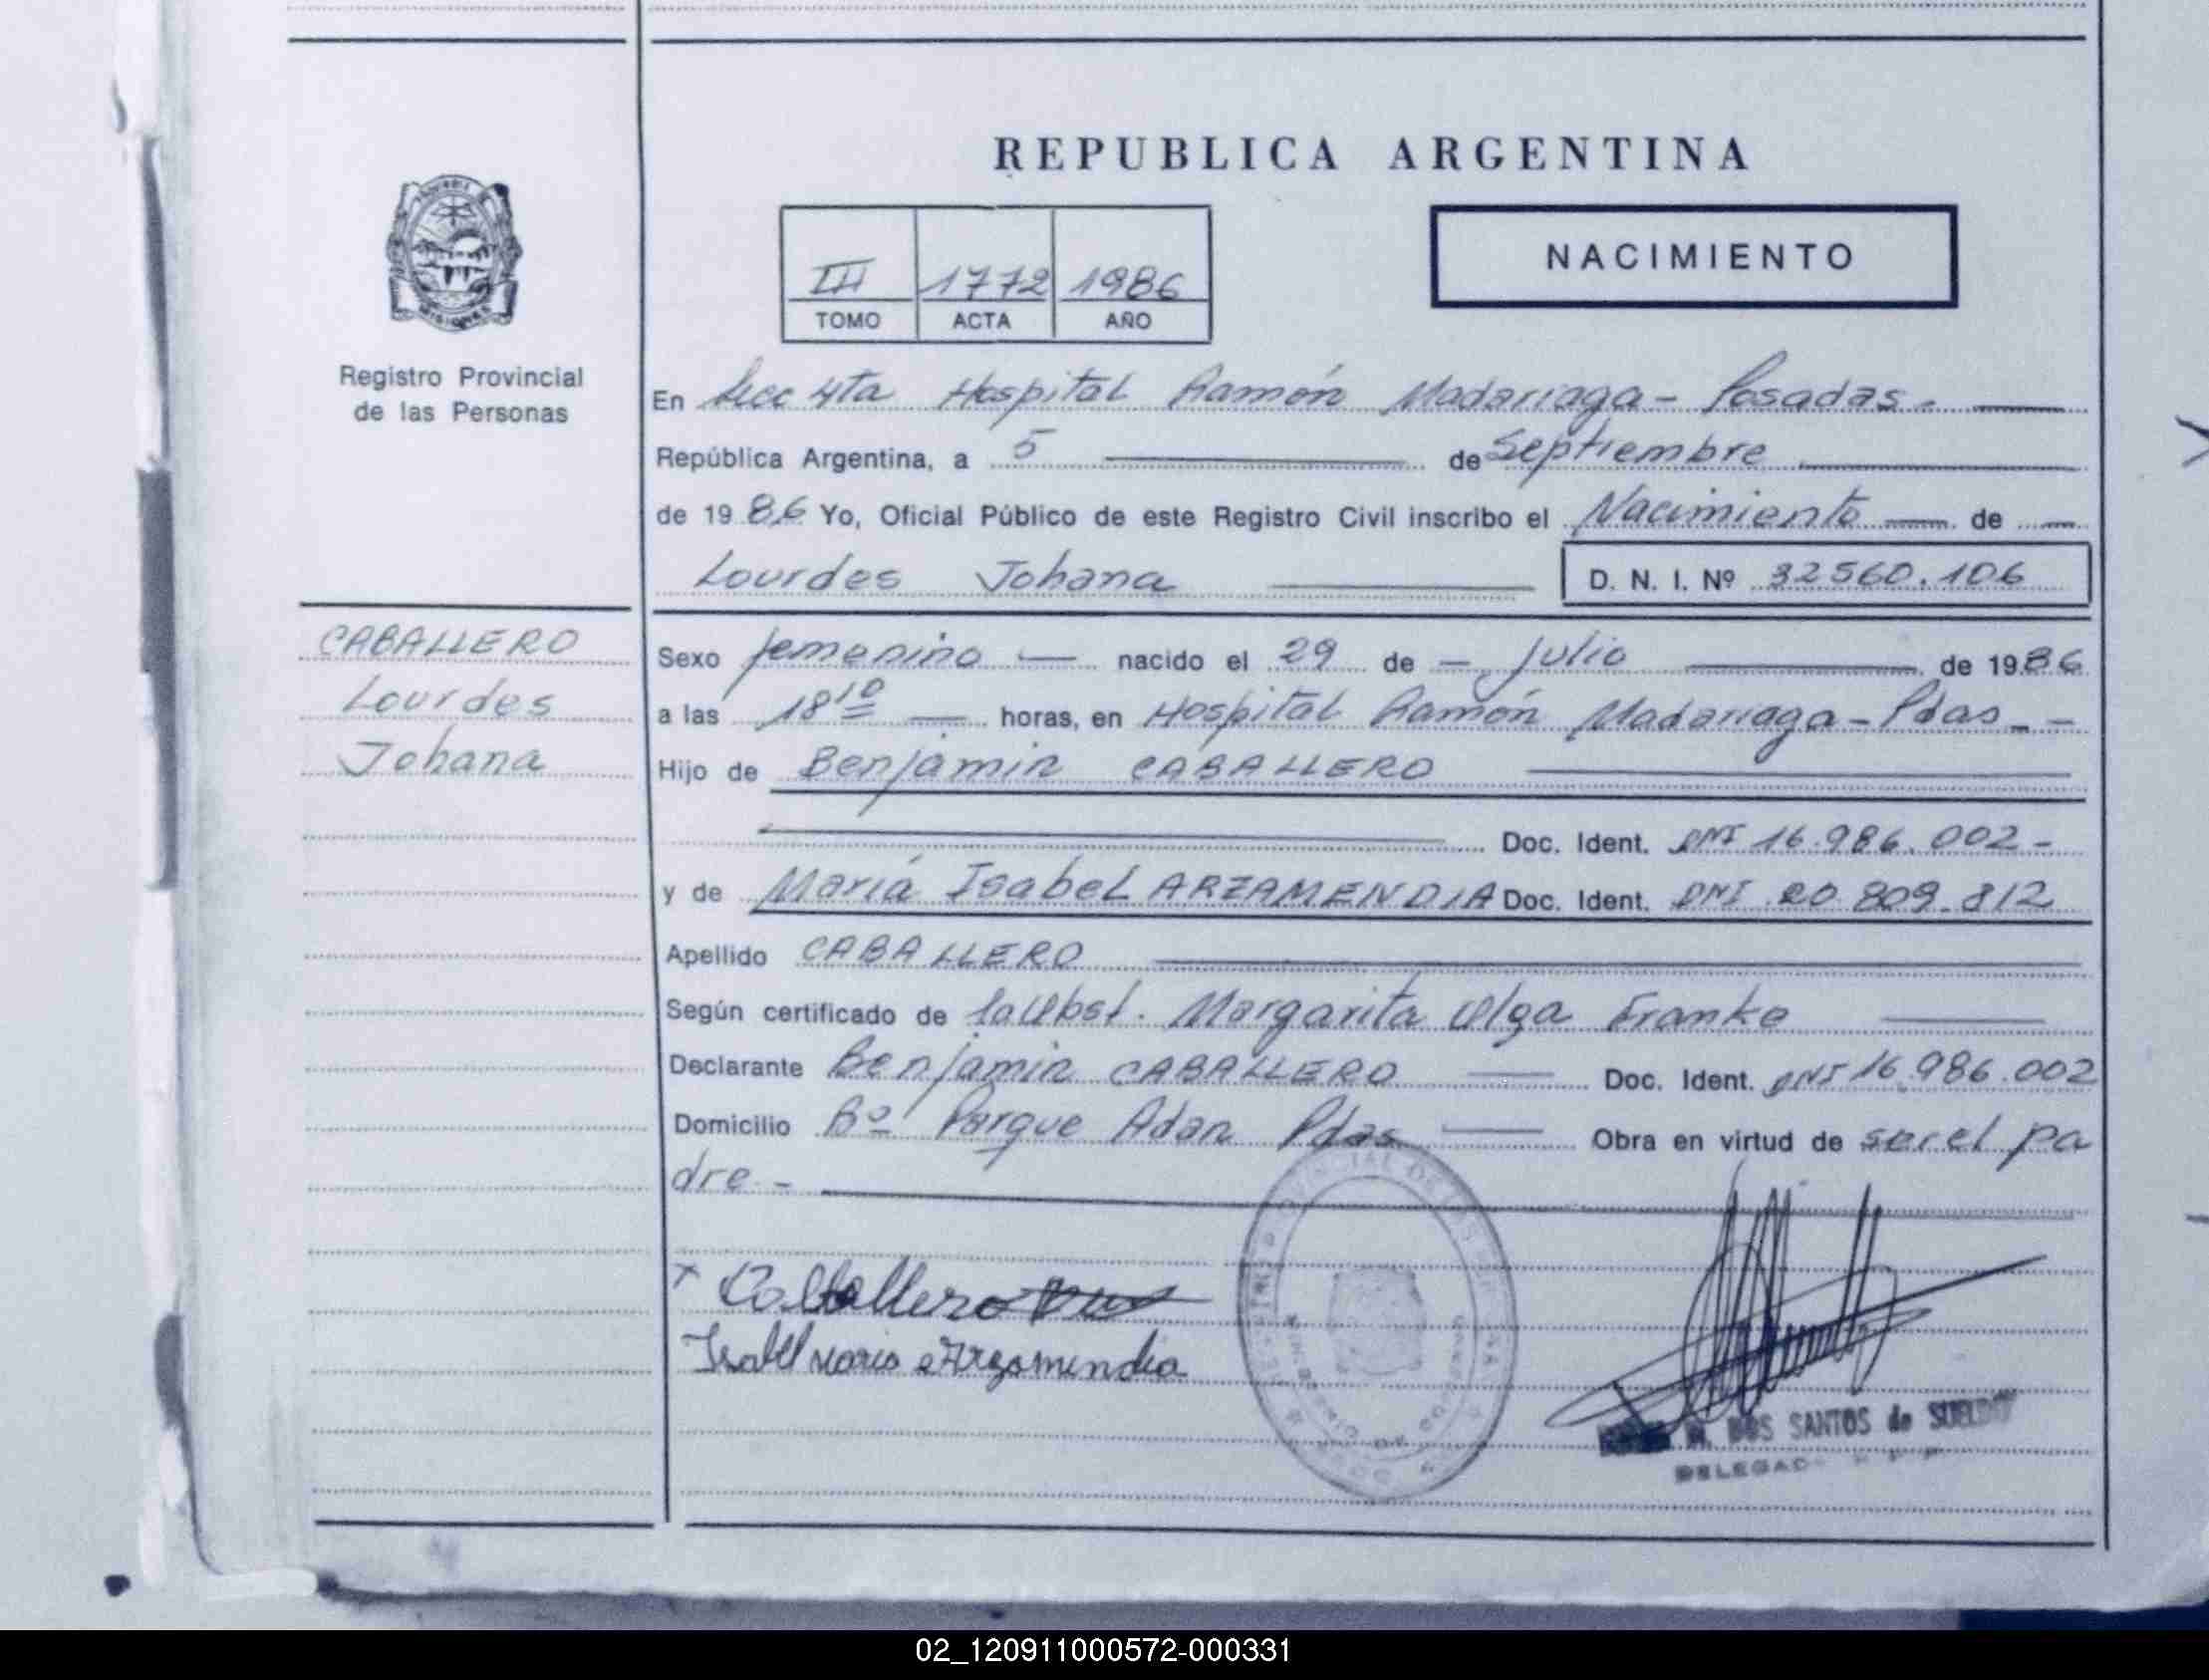 REPUBLICA ARGENTINA
NACIMIENTO
III 1772 1986
TOMO ACTA AÑO
Registro Provincial
de las Personas
En Secc 4ta Hospital Ramón Madariaga - Posadas.
República Argentina, a 5 de Septiembre
de 1986 Yo, Oficial Público de este Registro Civil inscribo el Nacimiento de
Lourdes Johana D. N. I. Nº 32560.106
CABALLERO
Lourdes
Johana
Sexo femenino nacido el 29 de julio de 1986
a las 18 10 horas, en Hospital Ramón Madariaga - Pdas
Hijo de Benjamin CABALLERO
Doc. Ident. DNI 16.986.002 -
y de María Isabel ARZAMENDIA Doc. Ident. DNI 20.809.812
Apellido CABALLERO
Según certificado de la Obst. Margarita Olga Franke
Declarante Benjamin CABALLERO Doc. Ident. DNI 16.986.002
Domicilio Bº Parque Adan Pdas Obra en virtud de ser el pa
dre -
x Caballero
Isabel maria Arzamendia
DOS SANTOS de SUELDO
02_120911000572-000331